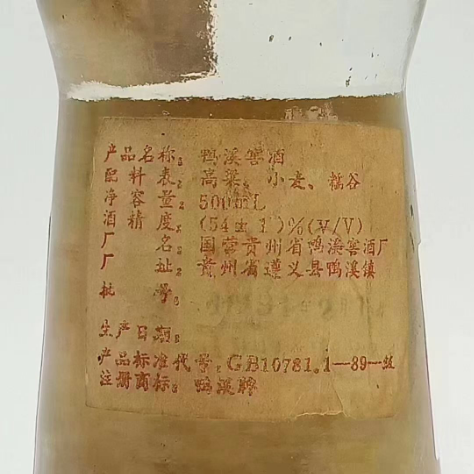 产品名称：鸭溪窖酒
配料表：高粱、小麦、稻谷
净容量：500mL
酒精度：(54±1)%(V/V)
厂名：国营贵州省鸭溪窖酒厂
厂址：贵州省遵义县鸭溪镇
批号：
生产日期：
产品标准代号：GB10781.1—89—
注册商标：鸭溪牌